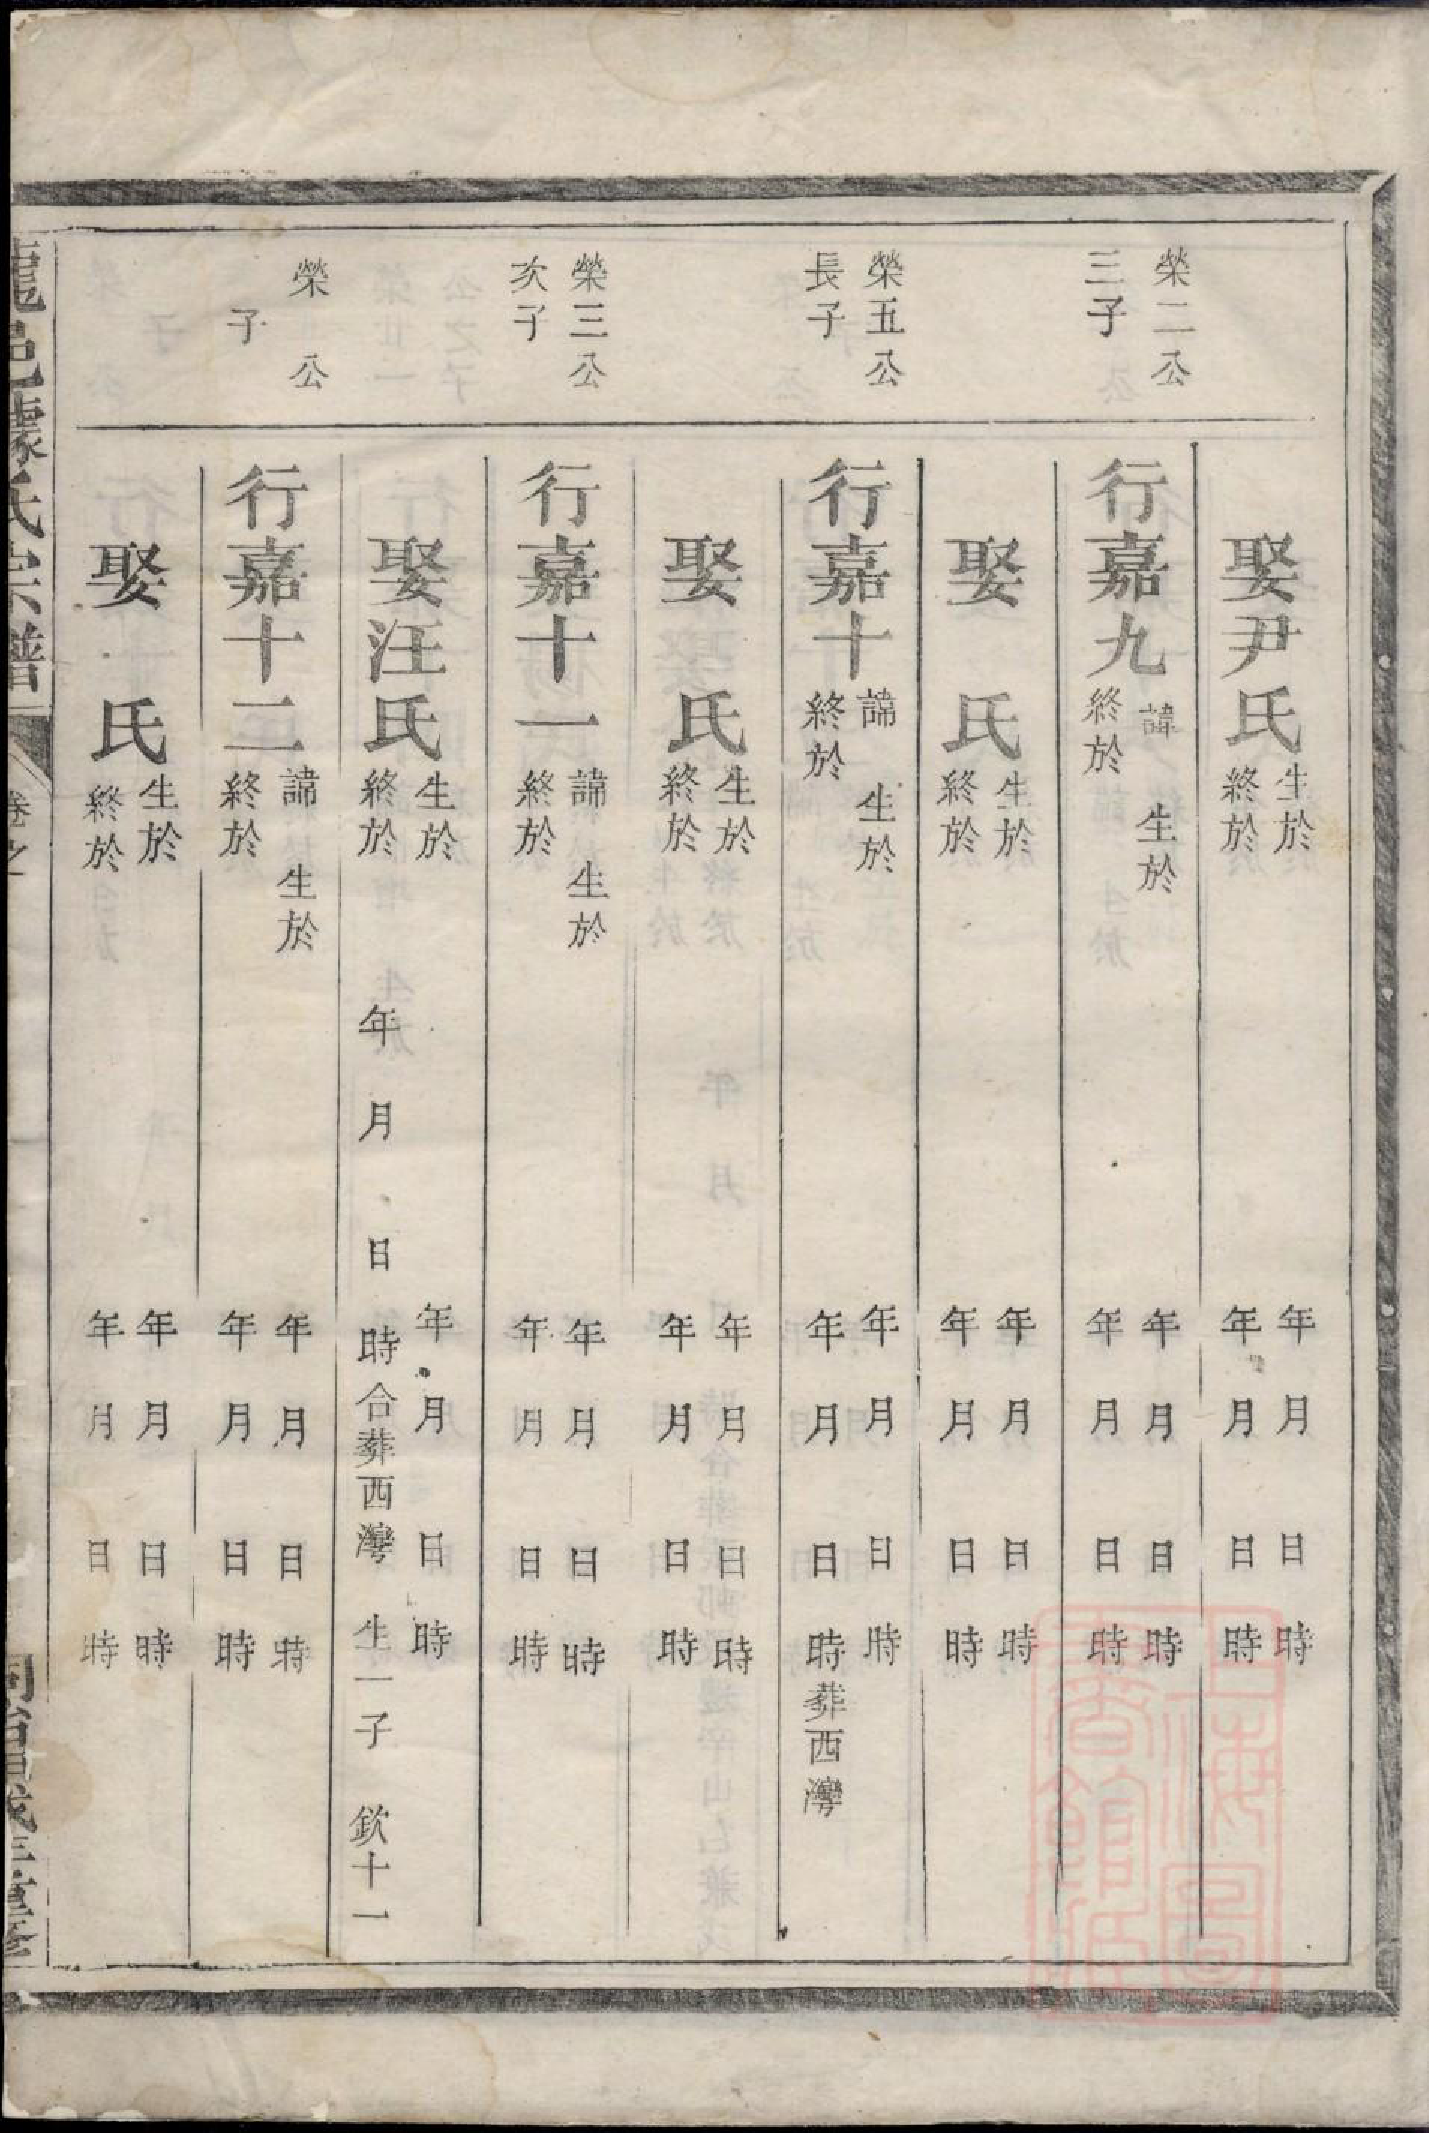 娶尹氏
生於 年 月 日 時
終於 年 月 日 時
榮二公
三子
行嘉九
諱 生於 年 月 日 時
終於 年 月 日 時
娶 氏
生於 年 月 日 時
終於 年 月 日 時
榮五公
長子
行嘉十
諱 生於 年 月 日 時
終於 年 月 日 時葬西灣
娶 氏
生於 年 月 日 時
終於 年 月 日 時
榮三公
次子
行嘉十一
諱 生於 年 月 日 時
終於 年 月 日 時
娶汪氏
生於 年 月 日 時
終於 年 月 日 時合葬西灣 生一子 欽十一
榮 公
子
行嘉十二
諱 生於 年 月 日 時
終於 年 月 日 時
娶 氏
生於 年 月 日 時
終於 年 月 日 時
龍邑 氏宗譜 卷之
上海圖書館藏